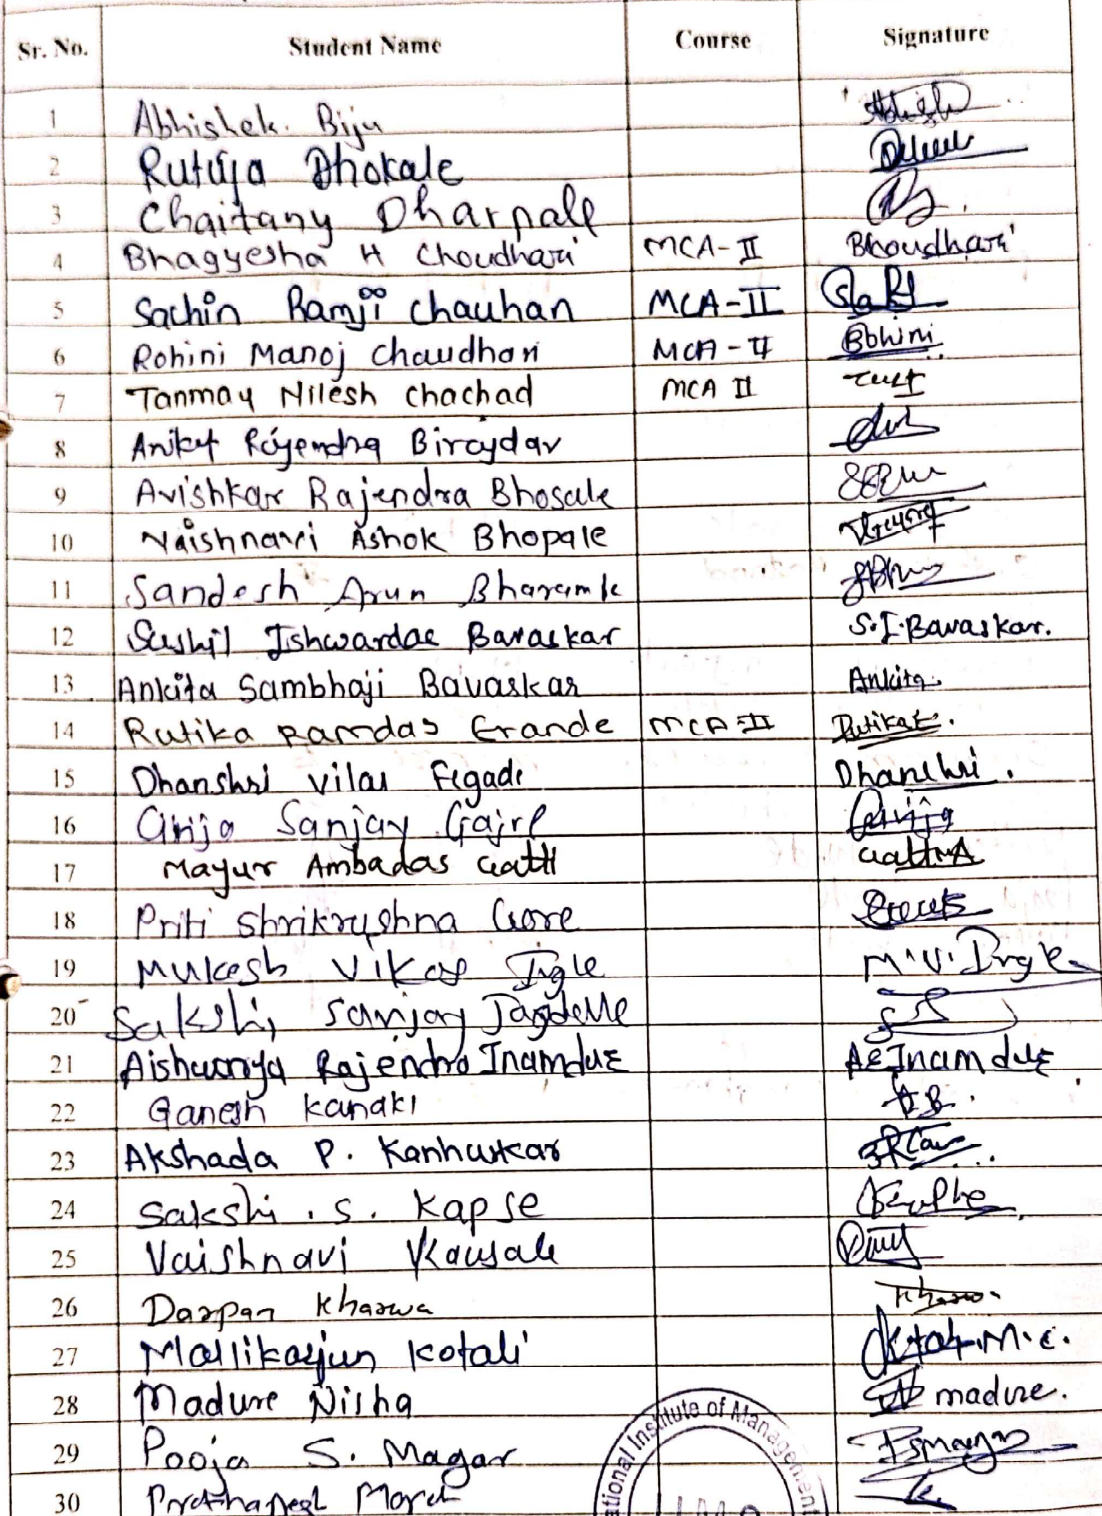 Sr. No. Student Name Course Signature
1 Abhishek. Biju
2 Rutuja Dhokale
3 Chaitany Dharpale
4 Bhagyesha H Choudhari MCA-II Bhoudhari
5 Sachin Ramji Chauhan MCA-II
6 Rohini Manoj Chaudhari MCA-II Rohini
7 Tanmay Nilesh Chachad MCA II
8 Aniket Rajendra Biraydar
9 Avishkar Rajendra Bhosale
10 Vaishnavi Ashok Bhopale
11 Sandesh Arun
12 Sushil Ishwardas Bavaskar S.I.Bavaskar.
13 Ankita Sambhaji Bavaskar Ankita.
14 Rutika Ramdas Erande MCA-II Rutika E.
15 Dhanshri Vilas Fegade Dhanshri.
16 Girija Sanjay Gajre Girija
17 Mayur Ambadas Gatti
18 Priti Shrikrushna Gore
19 Mukesh Vikas Ingle M.V.Ingle
20 Sakshi Sanjay
21 Aishwarya Rajendra Inamdar AR Inamdar
22 Ganesh Kanaki
23 Akshada P. Kanhurkar
24 Sakshi . S. Kapse
25 Vaishnavi Kausale
26 Darpan Kharwa
27 Mallikarjun Kotali
28 Madure Nisha madure.
29 Pooja S. Magar
30
ational Institute of Management